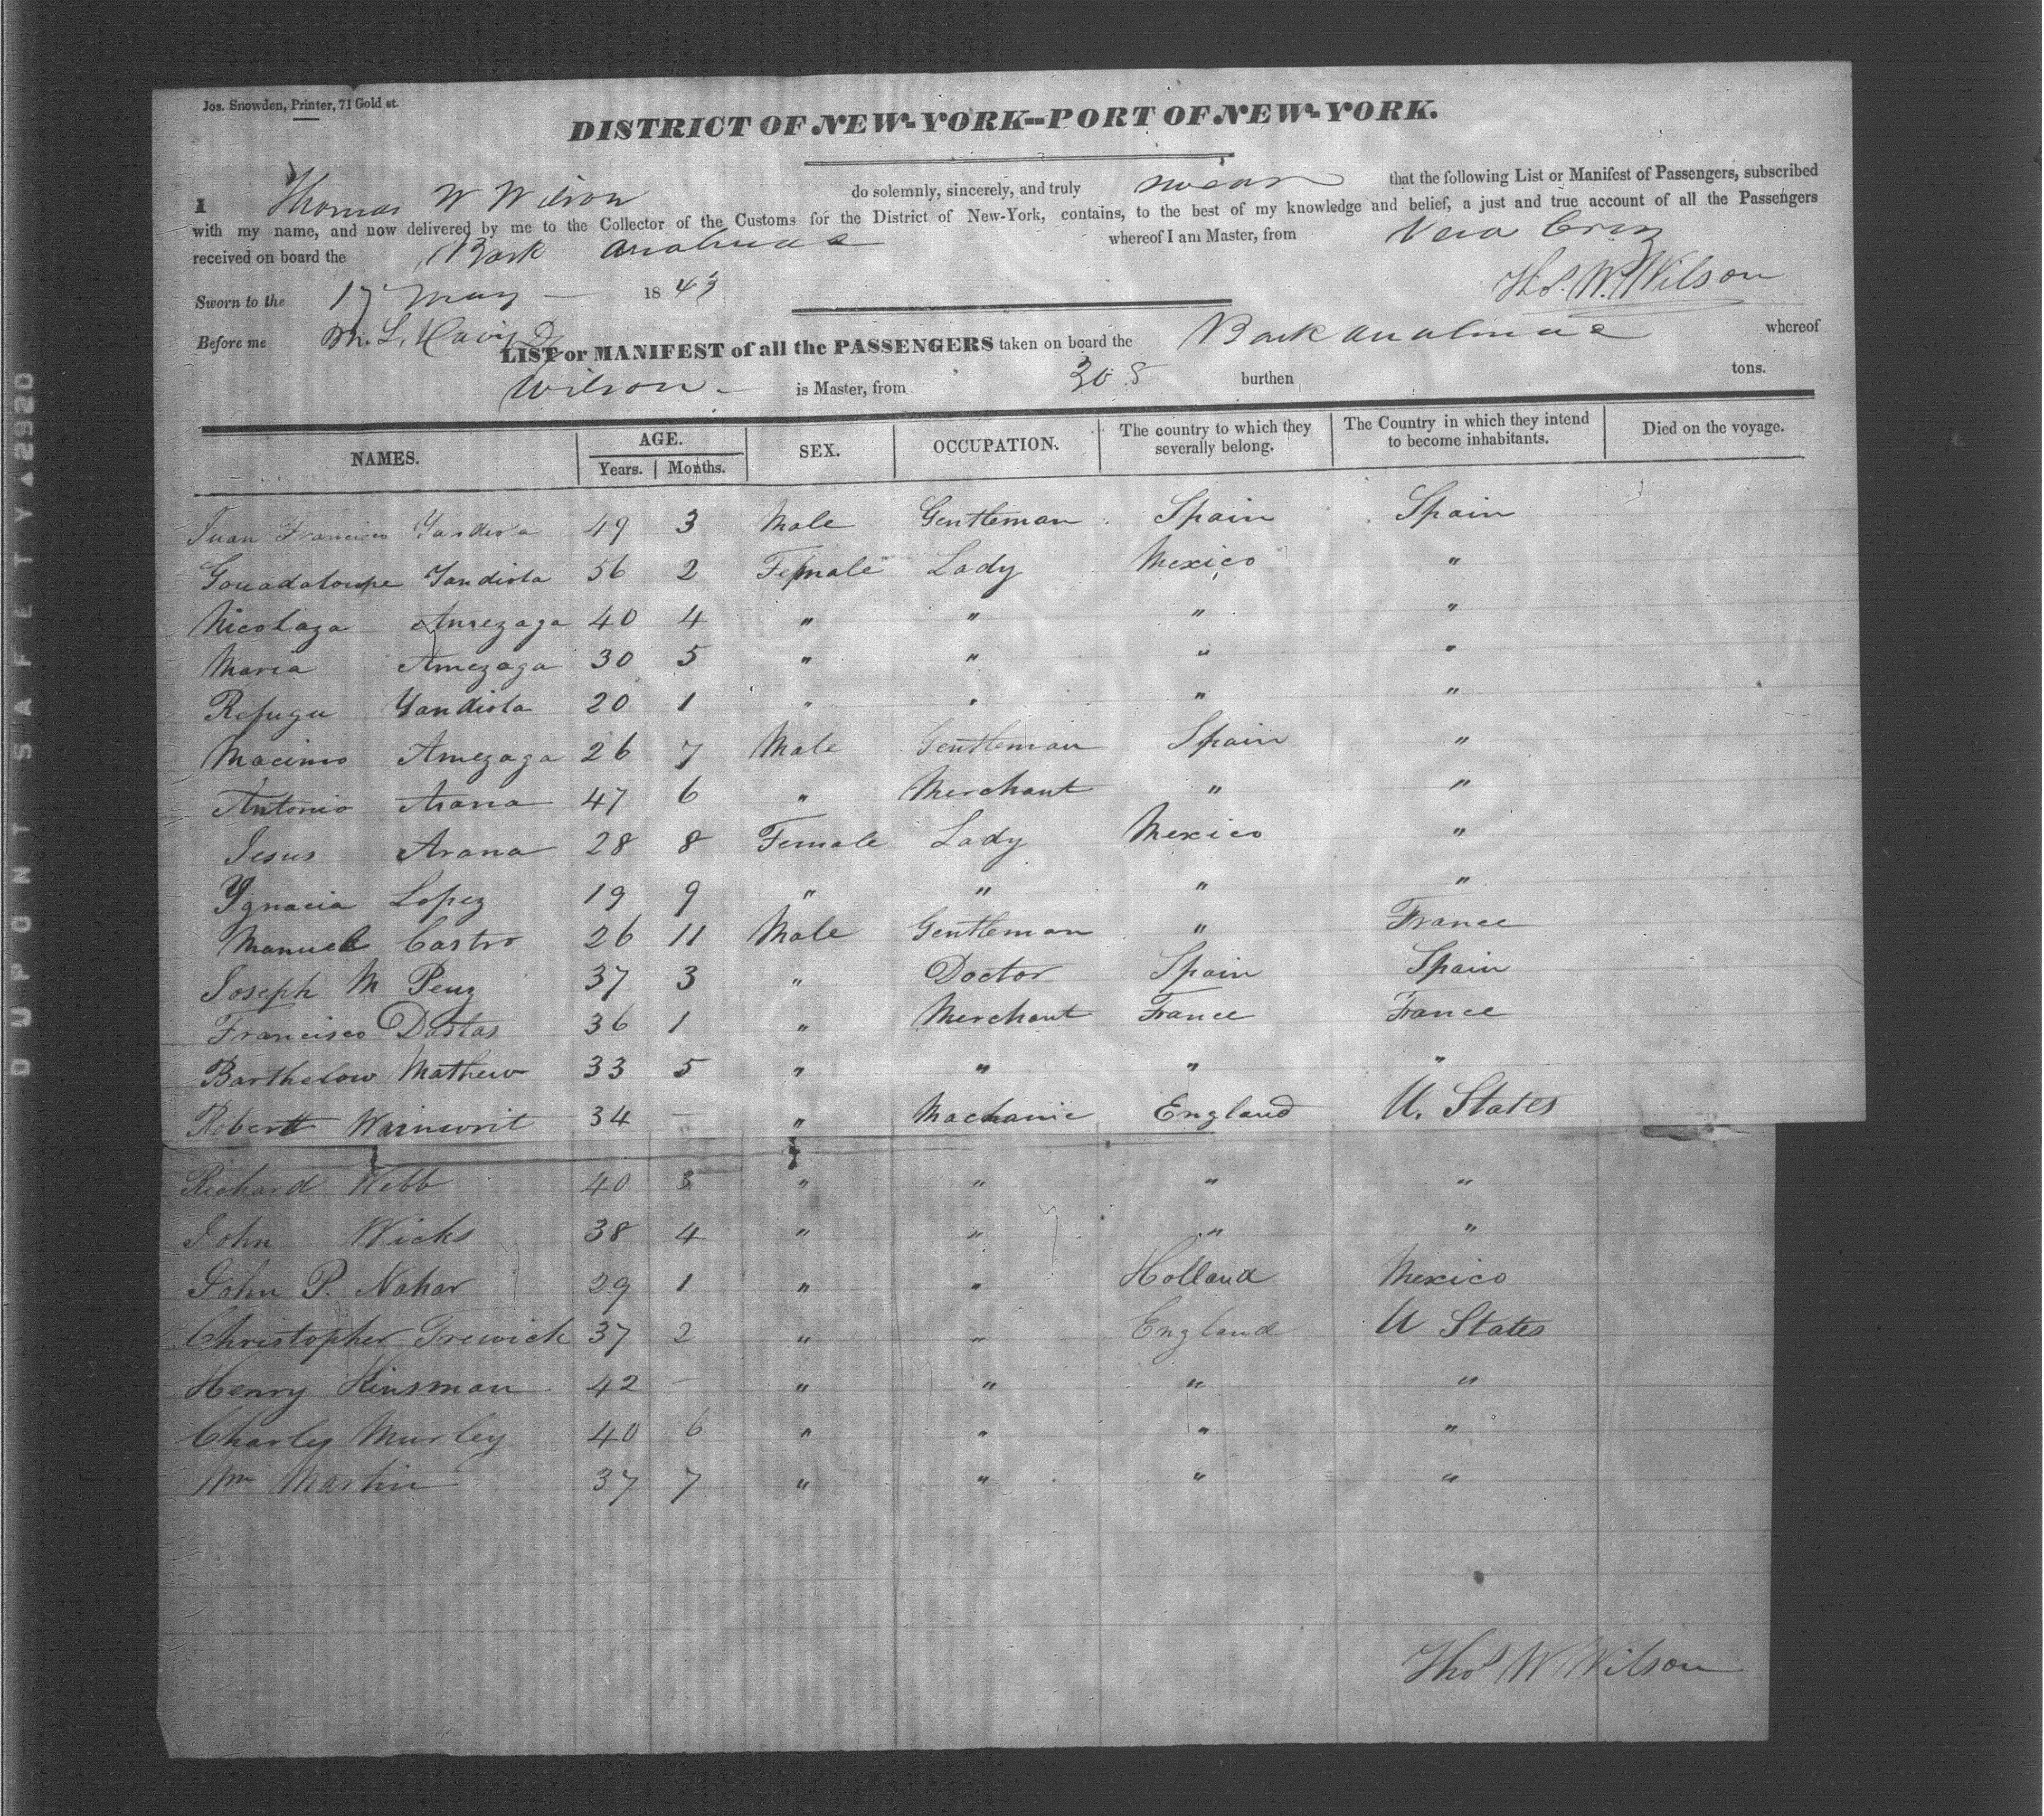 Jos. Snowden, Printer, 71 Gold st.
DISTRICT OF NEW-YORK--PORT OF NEW-YORK.
I Thomas W Wilson do solemnly, sincerely, and truly swear that the following List or Manifest of Passengers, subscribed
with my name, and now delivered by me to the Collector of the Customs for the District of New-York, contains, to the best of my knowledge and belief, a just and true account of all the Passengers
received on board the Bark whereof I am Master, from Vera Cruz
Thos. W. Wilson
Sworn to the 17 May 1843
Before me M. L. Davis
LIST or MANIFEST of all the PASSENGERS taken on board the Bark whereof
Wilson is Master, from 308 burthen tons.
NAMES. AGE. SEX. OCCUPATION. The country to which they severally belong. The Country in which they intend to become inhabitants. Died on the voyage.
Years. Months.
Juan Francisco Yandiola 49 3 Male Gentleman Spain Spain
Gouadaloupe Yandiola 56 2 Female Lady Mexico "
Nicolaza Amezaga 40 4 " " " "
Maria Amezaga 30 5 " " " "
Refugu Yandiola 20 1 " " " "
Macimo Amezaga 26 7 Male Gentleman Spain "
Antonio Arana 47 6 " Merchant " "
Jesus Arana 28 8 Female Lady Mexico "
Ygnacia Lopez 19 9 " " " "
Manuel Castro 26 11 Male Gentleman " France
Joseph M Penz 37 3 " Doctor Spain Spain
Francisco Dastas 36 1 " Merchant France France
Barthelow Mathew 33 5 " " " "
Robert Wainwrit 34 — " Machanic England U. States
Richard Webb 40 3 " " " "
John Wicks 38 4 " " " "
John P. Nahar 29 1 " " Holland Mexico
Christopher Trewick 37 2 " " England U States
Henry Kinsman 42 — " " " "
Charly Murley 40 6 " " " "
Wm Martin 37 7 " " " "
Thos W Wilson
DUPONT SAFETY▲2920